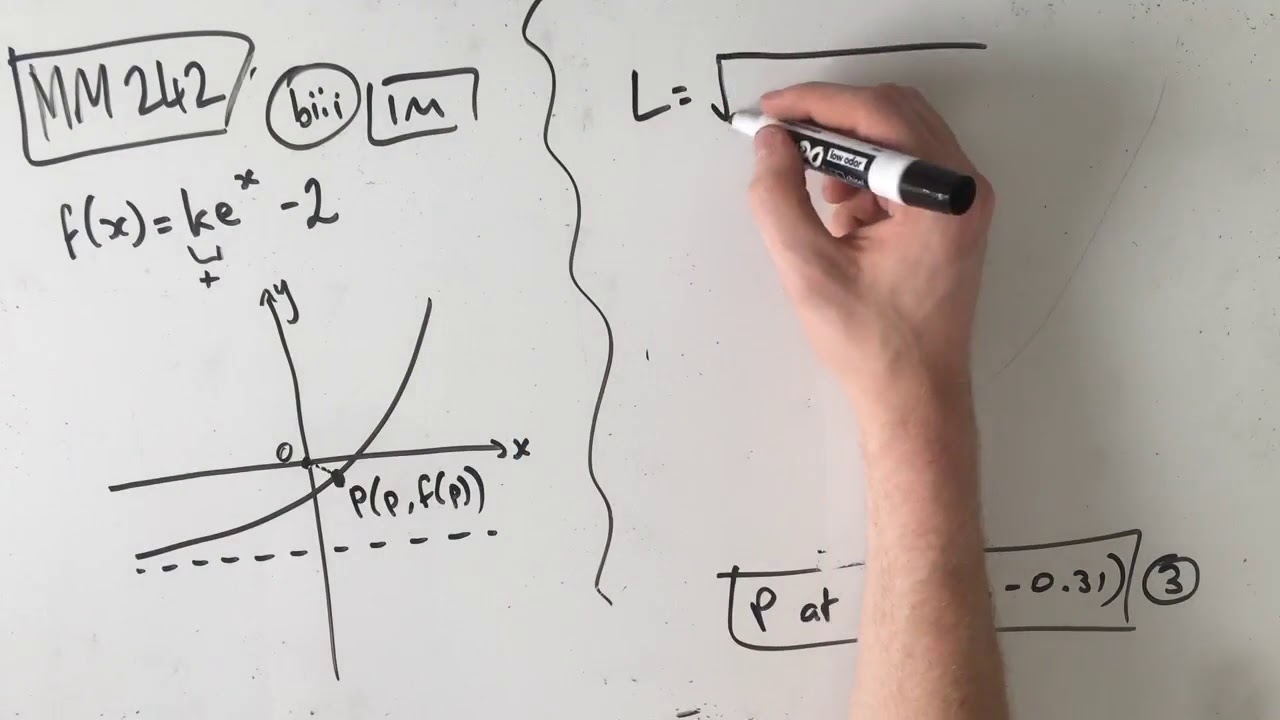 MM 242
biii
1M
f(x) = ke^x - 2
+
y
0
x
P(p, f(p))
L =
low odor
P at
-0.31)
3